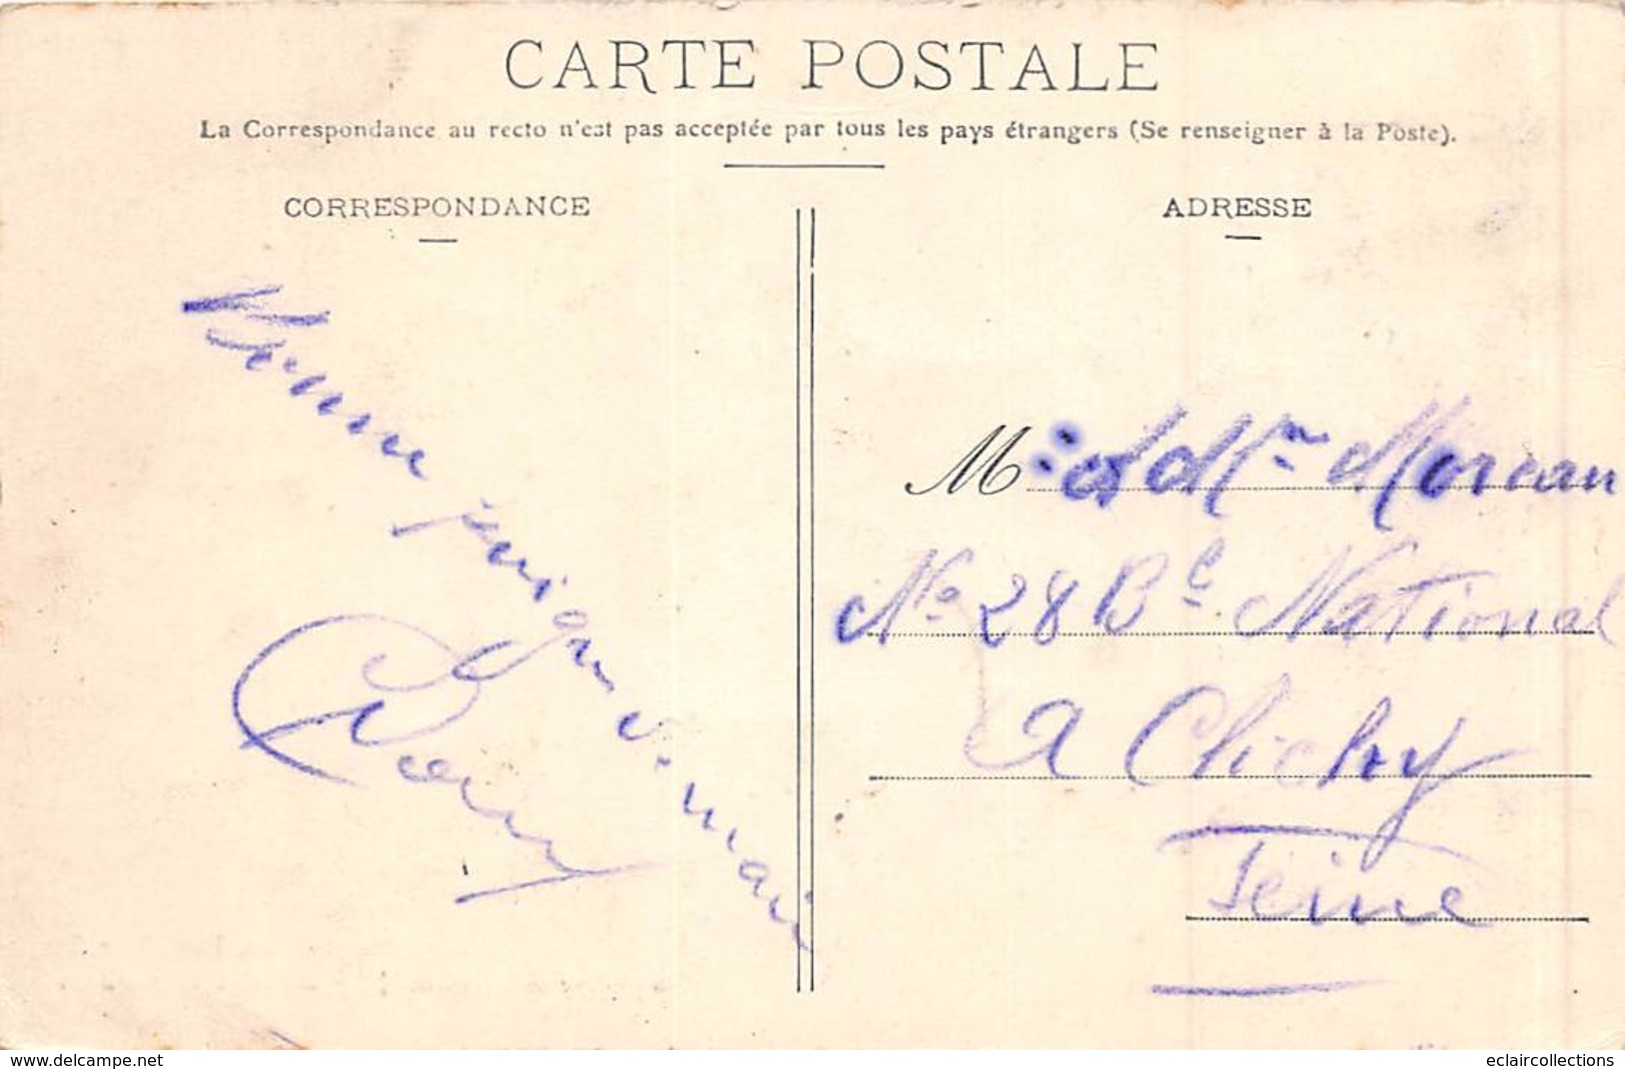 CARTE POSTALE
La Correspondance au recto n'est pas acceptée par tous les pays étrangers (Se renseigner à la Poste).
CORRESPONDANCE
ADRESSE
M. et Mme Moreau
No 28 Bd National
a Clichy
Seine
www.delcampe.net
eclaircollections